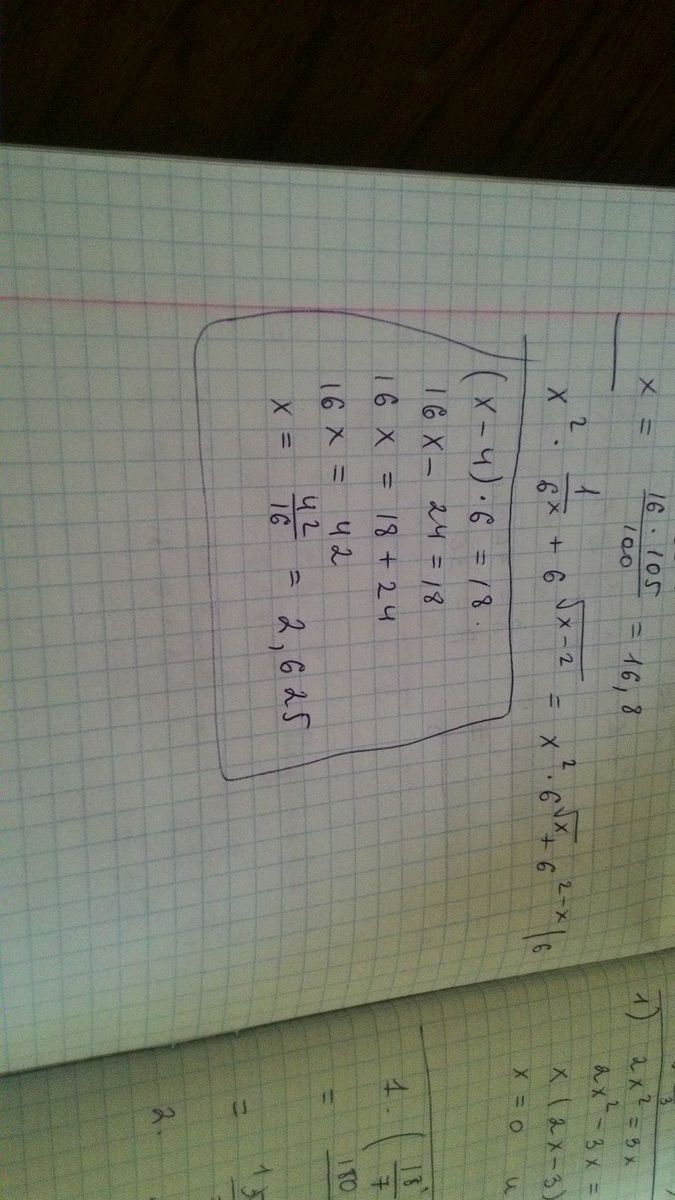 x = 16 · 105 / 100 = 16,8
x² · 1/6ˣ + 6^√(x-2) = x² · 6^√x + 6^(2-x) | 6
(x - 4) · 6 = 18.
16 x - 24 = 18
16 x = 18 + 24
16 x = 42
x = 42/16 = 2,625
3
1) 2x² = 3x
2x² - 3x =
x (2x - 3)
x = 0 и
1. ( 18/7
= 180
=
2.